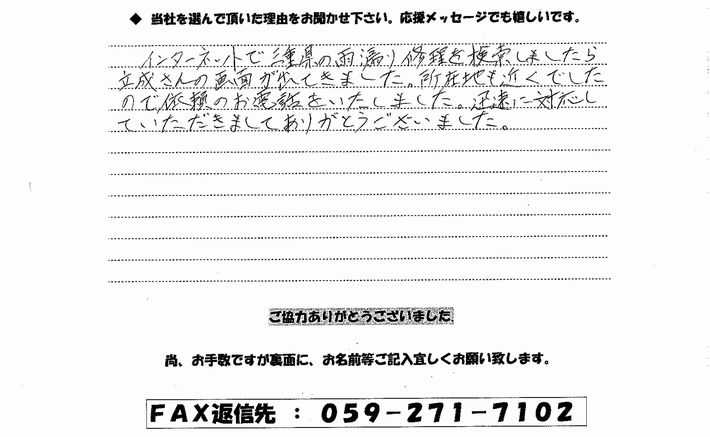 ◆ 当社を選んで頂いた理由をお聞かせ下さい。応援メッセージでも嬉しいです。
インターネットで三重県の雨漏り修理を検索しましたら
立成さんの画面が出てきました。所在地も近くでした
ので依頼のお電話をいたしました。迅速に対応し
ていただきましてありがとうございました。
ご協力ありがとうございました
尚、お手数ですが裏面に、お名前等ご記入宜しくお願い致します。
FAX返信先 : 059-271-7102